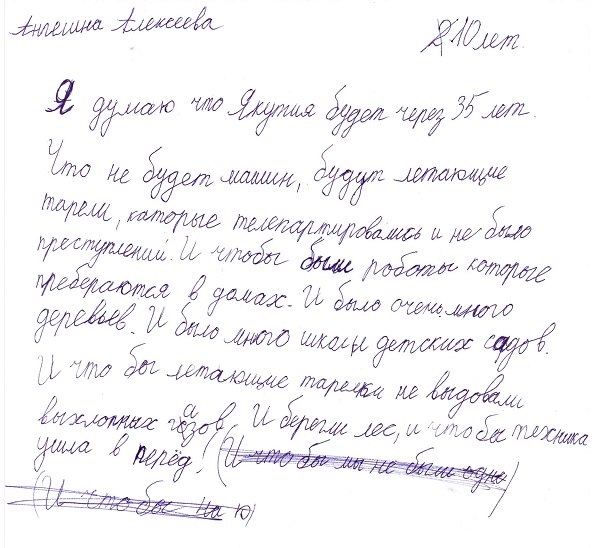 Ангелина Алексеева
10 лет.
Я думаю что Якутия будет через 35 лет.
Что не будет машин, будут летающие
тарели, каторые телепартировались и не было
преступлений. И чтобы были роботы которые
пребераются в домах. И было очень много
деревьев. И было много школы детских садов.
И что бы летающие тарелки не выдовали
выхлопных газов. И берегли лес, и что бы техника
ушла в перёд! (И что бы мы не были одни)
(И что бы на ю)